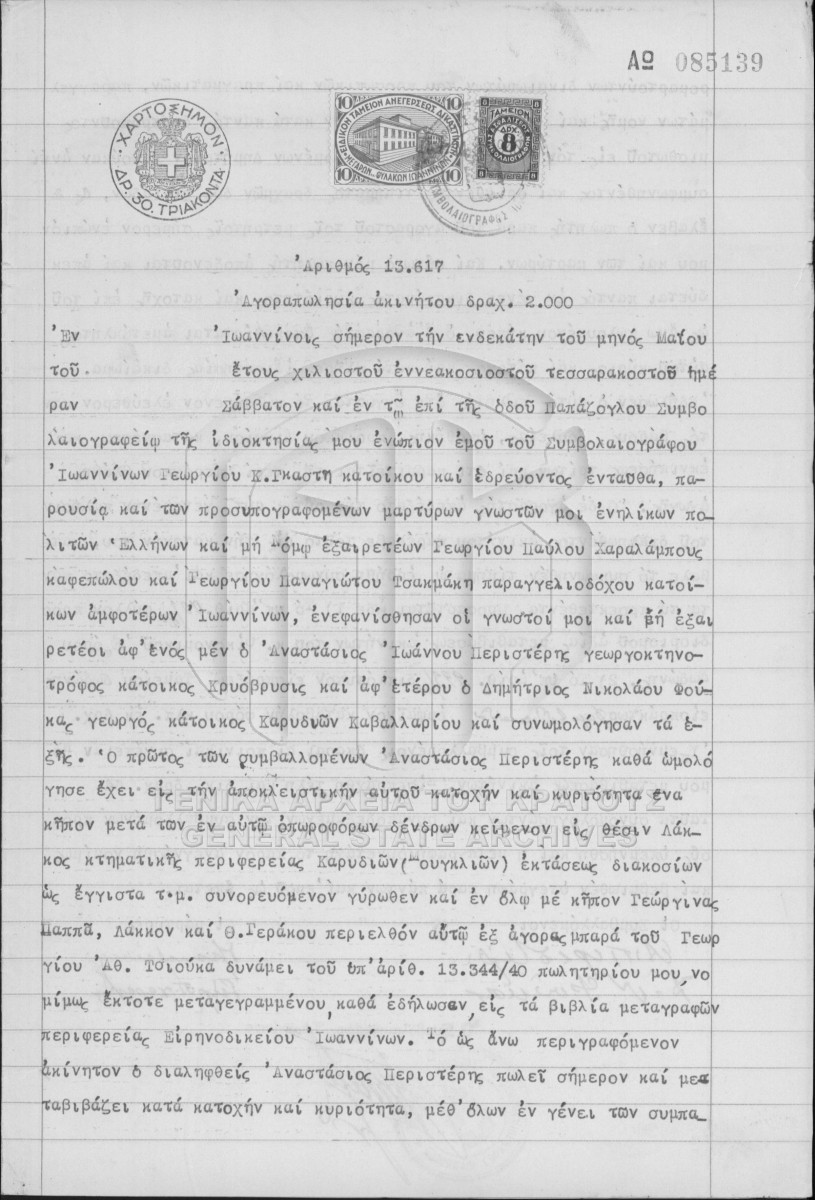 ΑΩ 085139
ΧΑΡΤΟΣΗΜΟΝ
ΔΡ. 30. ΤΡΙΑΚΟΝΤΑ
10 10
ΕΙΔΙΚΟΝ ΤΑΜΕΙΟΝ ΑΝΕΓΕΡΣΕΩΣ ΔΙΚΑΣΤΙΚΟΥ
ΜΕΓΑΡΟΥ ΦΥΛΑΚΩΝ ΙΩΑΝΝΙΝΩΝ
10 10
ΤΑΜΕΙΟΝ
ΔΡΧ
8
ΣΥΜΒΟΛΑΙΟΓΡΑΦΩΝ
ΣΥΜΒΟΛΑΙΟΓΡΑΦΟΣ
Ἀριθμός 13.617
Ἀγοραπωλησία ἀκινήτου δραχ. 2.000
Ἐν Ἰωαννίνοις σήμερον τήν ἐνδεκάτην τοῦ μηνός Μαΐου
τοῦ ἔτους χιλιοστοῦ ἐννεακοσιοστοῦ τεσσαρακοστοῦ ἡμέ
ραν Σάββατον καί ἐν τῷ ἐπί τῆς ὁδοῦ Παπάζογλου Συμβο
λαιογραφείῳ τῆς ἰδιοκτησίας μου ἐνώπιον ἐμοῦ τοῦ Συμβολαιογράφου
Ἰωαννίνων Γεωργίου Κ.Γκαστη κατοίκου καί ἑδρεύοντος ἐνταῦθα, πα-
ρουσίᾳ καί τῶν προσυπογραφομένων μαρτύρων γνωστῶν μοι ἐνηλίκων πο-
λιτῶν Ἑλλήνων καί μή νόμῳ ἐξαιρετέων Γεωργίου Παύλου Χαραλάμπους
καφεπώλου καί Γεωργίου Παναγιώτου Τσακμάκη παραγγελιοδόχου κατοί-
κων ἀμφοτέρων Ἰωαννίνων, ἐνεφανίσθησαν οἱ γνωστοί μοι καί μή ἐξαι
ρετέοι ἀφ'ἑνός μέν ὁ Ἀναστάσιος Ἰωάννου Περιστέρης γεωργοκτηνο-
τρόφος κάτοικος Κρυόβρυσις καί ἀφ'ἑτέρου ὁ Δημήτριος Νικολάου Φού-
κας γεωργός κάτοικος Καρυδιῶν Καβαλλαρίου καί συνωμολόγησαν τά ἑ-
ξῆς. Ὁ πρῶτος τῶν συμβαλλομένων Ἀναστάσιος Περιστέρης καθά ὡμολό
γησε ἔχει εἰς τήν ἀποκλειστικήν αὐτοῦ κατοχήν καί κυριότητα ἕνα
κῆπον μετά τῶν ἐν αὐτῷ ὀπωροφόρων δένδρων κείμενον εἰς θέσιν Λάκ-
κος κτηματικῆς περιφερείας Καρυδιῶν(Μουγκλιῶν) ἐκτάσεως διακοσίων
ὡς ἔγγιστα τ.μ. συνορευόμενον γύρωθεν καί ἐν ὅλῳ μέ κῆπον Γεώργίνας
Παππᾶ, Λάκκον καί Θ.Γεράκου περιελθόν αὐτῷ ἐξ ἀγορᾶς παρά τοῦ Γεωρ
γίου Ἀθ. Τσιούκα δυνάμει τοῦ ὑπ'ἀρίθ. 13.344/40 πωλητηρίου μου, νο
μίμως ἔκτοτε μεταγεγραμμένου, καθά ἐδήλωσαν, εἰς τά βιβλία μεταγραφῶν
περιφερείας Εἰρηνοδικείου Ἰωαννίνων. Τό ὡς ἄνω περιγραφόμενον
ἀκίνητον ὁ διαληφθείς Ἀναστάσιος Περιστέρης πωλεῖ σήμερον καί με
ταβιβάζει κατά κατοχήν καί κυριότητα, μέθ'ὅλων ἐν γένει τῶν συμπα-
ΓΕΝΙΚΑ ΑΡΧΕΙΑ ΤΟΥ ΚΡΑΤΟΥΣ
GENERAL STATE ARCHIVES